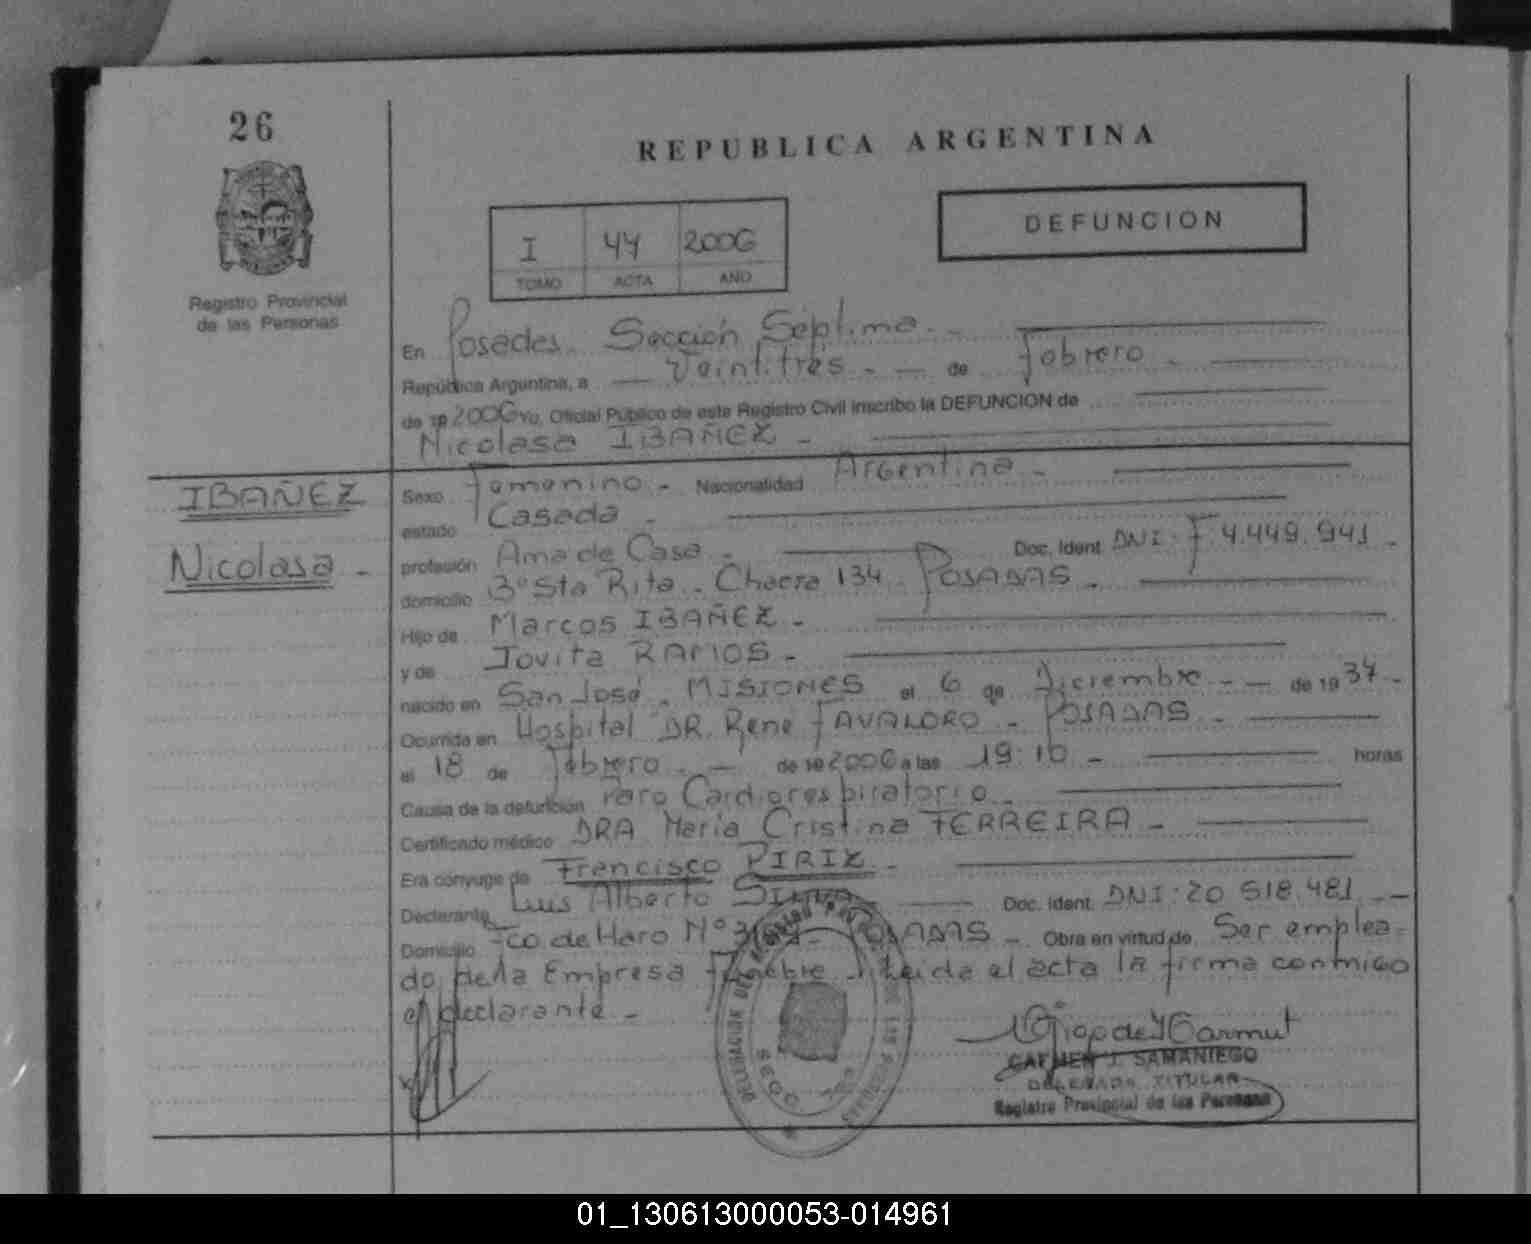 26
REPUBLICA ARGENTINA
I 44 2006
TOMO ACTA AÑO
DEFUNCION
Registro Provincial
de las Personas
En Posadas. Sección Séptima.-
República Argentina, a Veintitrés.- de febrero.-
de 19 2006 Yo, Oficial Público de este Registro Civil inscribo la DEFUNCION de
Nicolasa IBAÑEZ.-
IBAÑEZ
Nicolasa.-
Sexo femenino.- Nacionalidad Argentina.-
estado Casada.-
profesión Ama de Casa.- Doc. Ident. DNI: F 4.449.941.-
domicilio Bº Sta Rita.. Chacra 134. POSADAS.-
Hijo de Marcos IBAÑEZ.-
y de Jovita RAMOS.-
nacido en San José. MISIONES el 6 de Diciembre.- de 19 37.-
Ocurrida en Hospital DR. Rene FAVALORO - POSADAS.-
el 18 de febrero.- de 19 2006 a las 19:10.- horas
Causa de la defunción Paro Cardiorespiratorio.-
Certificado médico DRA Maria Cristina FERREIRA.-
Era cónyuge de Francisco PIRIZ.-
Declarante Luis Alberto SILVA.- Doc. Ident. DNI: 20 518.481.-
Domicilio Fco. de Haro Nº POSADAS.- Obra en virtud de Ser emplea-
do de la Empresa fúnebre.- Leida el acta la firma conmigo
el declarante.-
CARMEN J. SAMANIEGO
DELEGADA TITULAR
Registro Provincial de las Personas
01_130613000053-014961